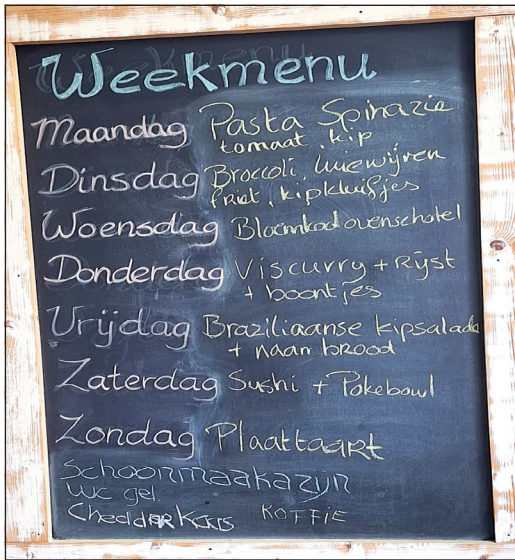 Weekmenu
Maandag Pasta Spinazie
tomaat, kip
Dinsdag Broccoli,
Friet, kipkluifjes
Woensdag Bloemkool ovenschotel
Donderdag Viscurry + Rijst
+ boontjes
Vrijdag Braziliaanse kipsalade
+ naan brood
Zaterdag Sushi + Pokebowl
Zondag Plaattaart
Schoonmaakazijn
WC gel
Cheddar Kaas KOFFIE